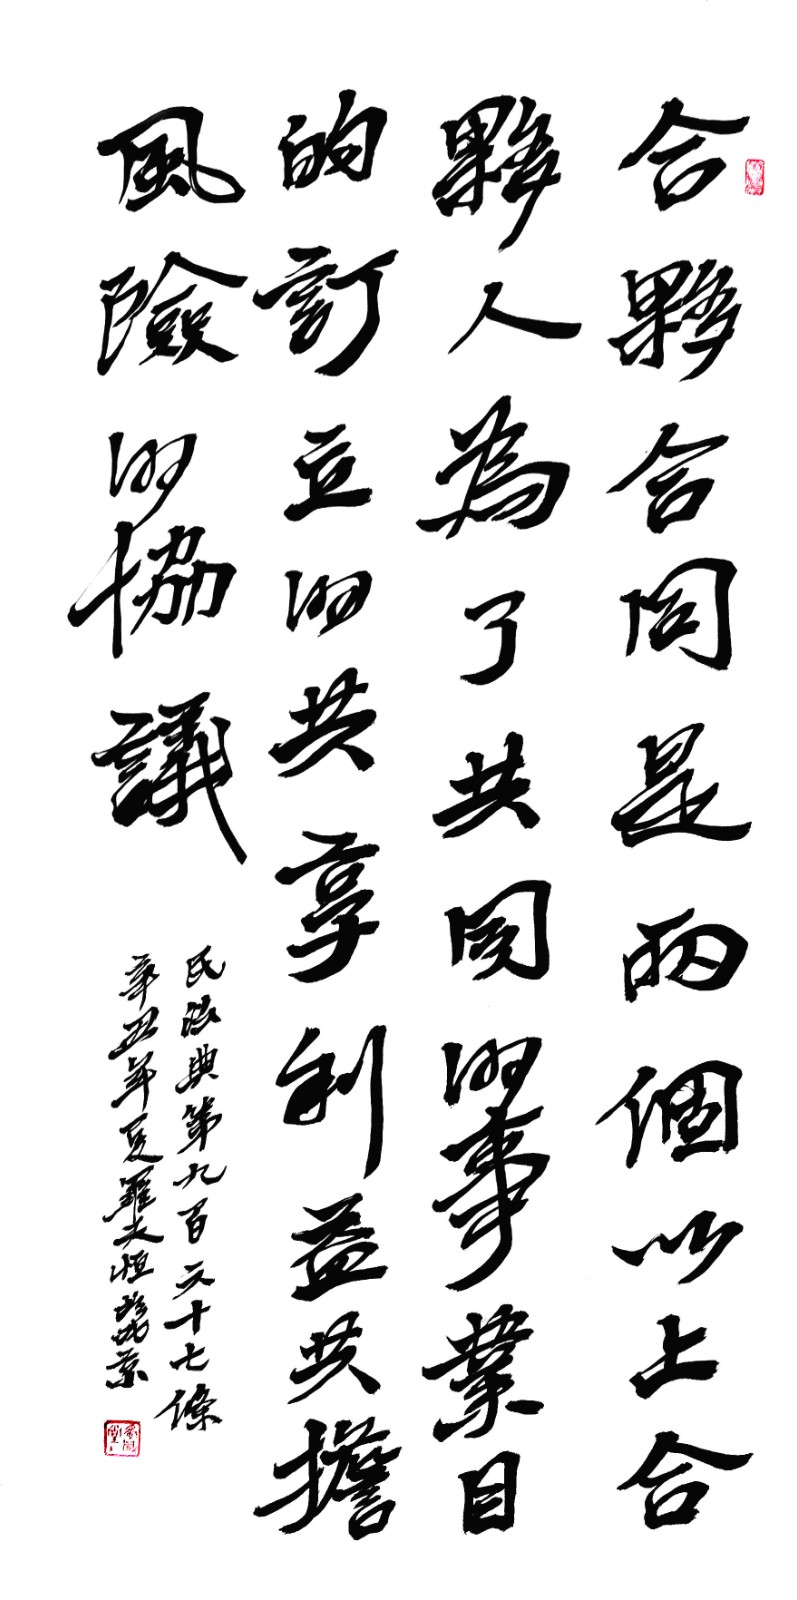 合夥合同是兩個以上合
夥人為了共同的事業目
的訂立的共享利益共擔
風險的協議
民法典第九百六十七條
辛丑年夏羅大恒於北京